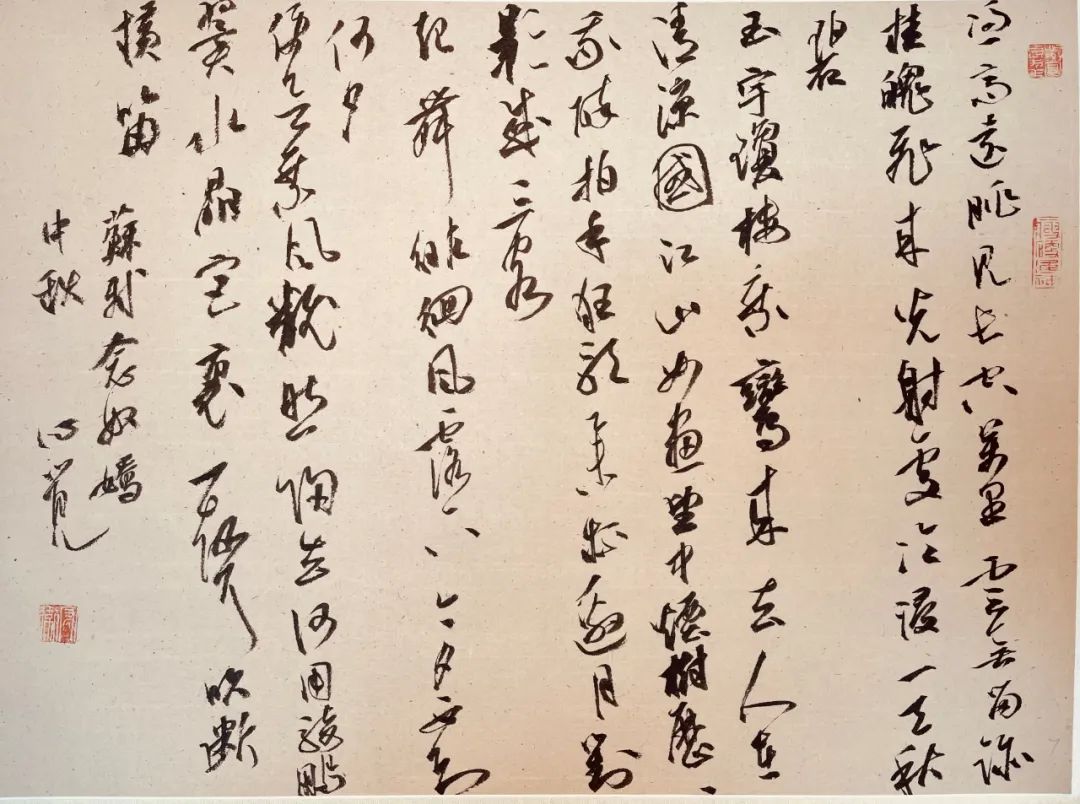 憑高遠眺見長空萬里雲無留跡
桂魄飛來光射處冷浸一天秋
碧
玉宇瓊樓乘鸞來去人在
清涼國江山如畫望中煙樹歷歷
我醉拍手狂歌舉杯邀月對
影成三客
起舞徘徊風露下今夕不知
何夕
便欲乘風翻然歸去何用騎鵬
翼水晶宮裏一聲吹斷
橫笛
蘇軾念奴嬌
中秋